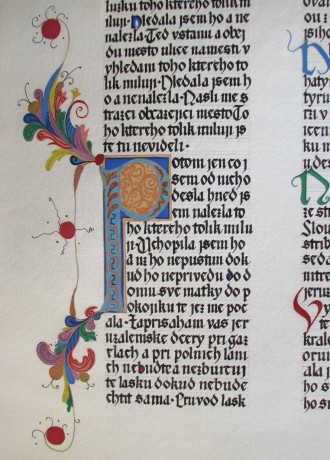 luzku toho ktereho tolik m
iluji· Hledala jsem ho a ne
nalezla· Ted vstanu a obej
du mesto ulice namesti v
yhledam toho ktereho to
lik miluji· Hledala jsem h
o a nenalezla· Nasli me s
trazci obcazejici mesto· To
ho ktereho tolik miluji js
te tu nevideli·
Potom jen co j
sem od nich o
desla hned js
em nalezla to
ho ktereho tolik milu
ji· Uchopila jsem ho
a uz ho nepustim dok
ud ho neprivedu do d
omu sve matky do p
okojiku te jez me poc
ala· Zaprisaham vas jer
uzalemske dcery pri gaz
elach a pri polnich lani
ch nebudte a nezburcuji
te lasku dokud nebude
chtit sama· Pruvod lask